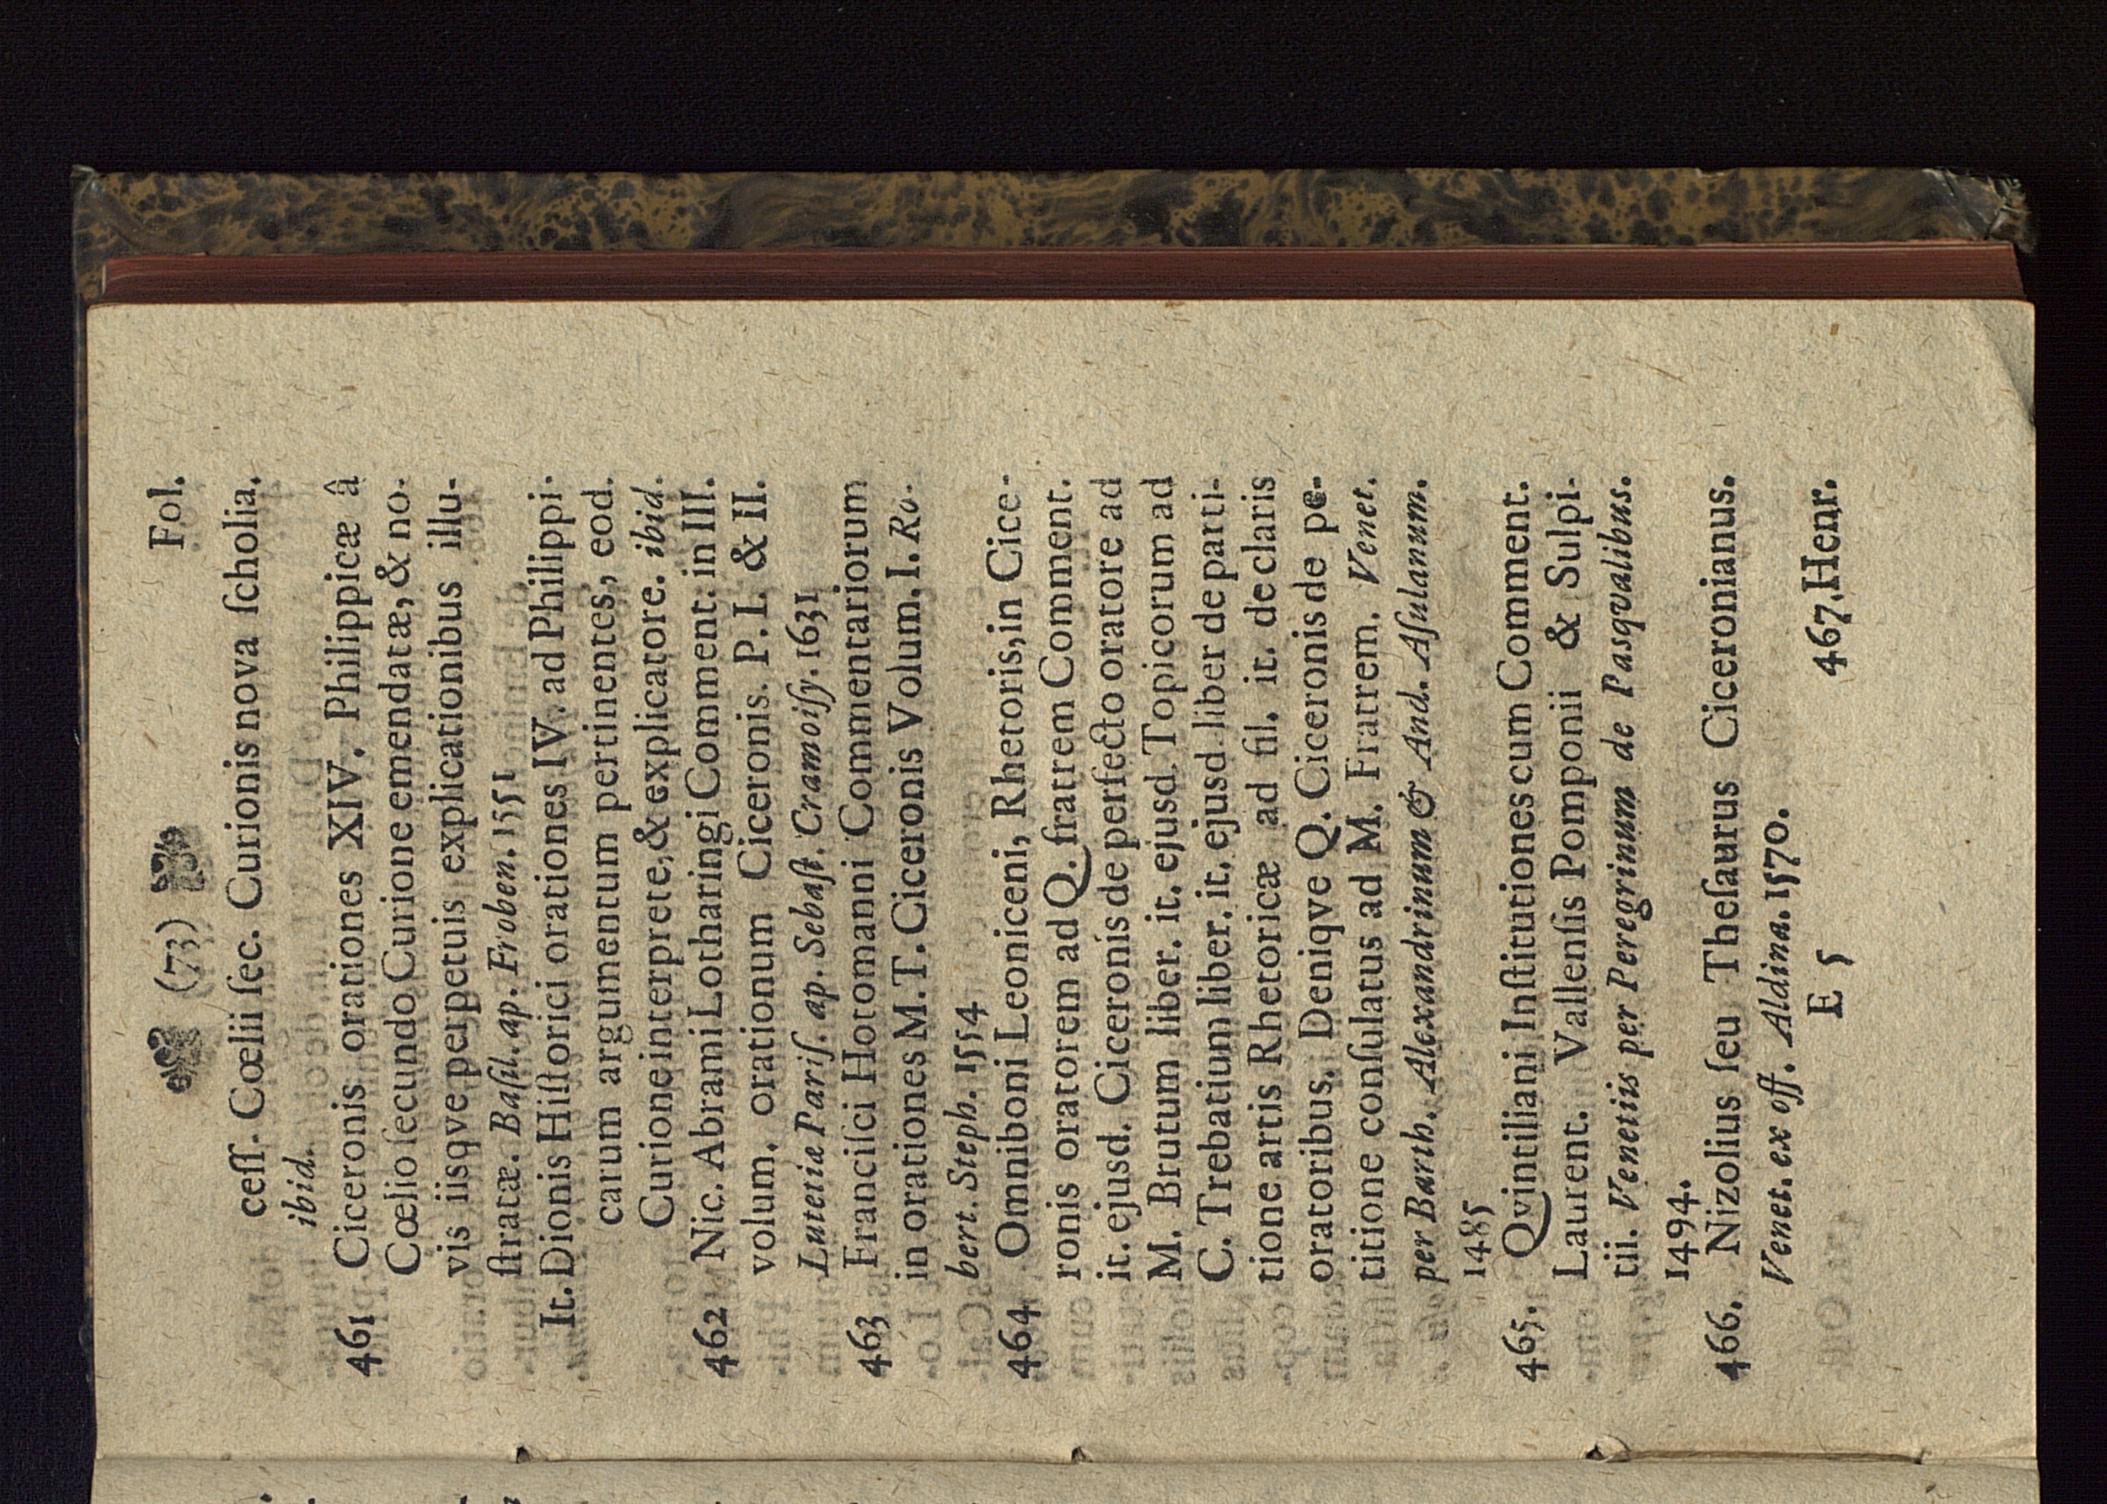 (73) Fol.
ceſſ. Cœlii ſec. Curionis nova ſcholia.
ibid.
461 Ciceronis orationes XIV. Philippicæ â
Cœlio ſecundo Curione emendatæ, & no-
vis iisqve perpetuis explicationibus illu-
ſtratæ. Baſil. ap. Froben. 1551
It. Dionis Hiſtorici orationes IV. ad Philippi-
carum argumentum pertinentes, eod.
Curione interprete, & explicatore. ibid.
462 Nic. Abrami Lotharingi Comment. in III.
volum. orationum Ciceronis. P. I. & II.
Lutetiæ Pariſ. ap. Sebaſt. Cramoiſy. 1631
463 Franciſci Hotomanni Commentariorum
in orationes M. T. Ciceronis Volum. I. Ro-
bert. Steph. 1554
464 Omniboni Leoniceni, Rhetoris, in Cice-
ronis oratorem ad Q. fratrem Comment.
it. ejusd. Ciceronis de perfecto oratore ad
M. Brutum liber. it. ejusd. Topicorum ad
C. Trebatium liber. it. ejusd liber de parti-
tione artis Rhetoricæ ad fil. it. de claris
oratoribus. Deniqve Q. Ciceronis de pe-
titione conſulatus ad M. Fratrem. Venet.
per Barth. Alexandrinum & And. Aſulanum.
1485
465. Qvintiliani Inſtitutiones cum Comment.
Laurent. Vallenſis Pomponii & Sulpi-
tii. Venetiis per Peregrinum de Pasqvalibus.
1494.
466. Nizolius ſeu Theſaurus Ciceronianus.
Venet. ex off. Aldina. 1570.
E 5 467. Henr.